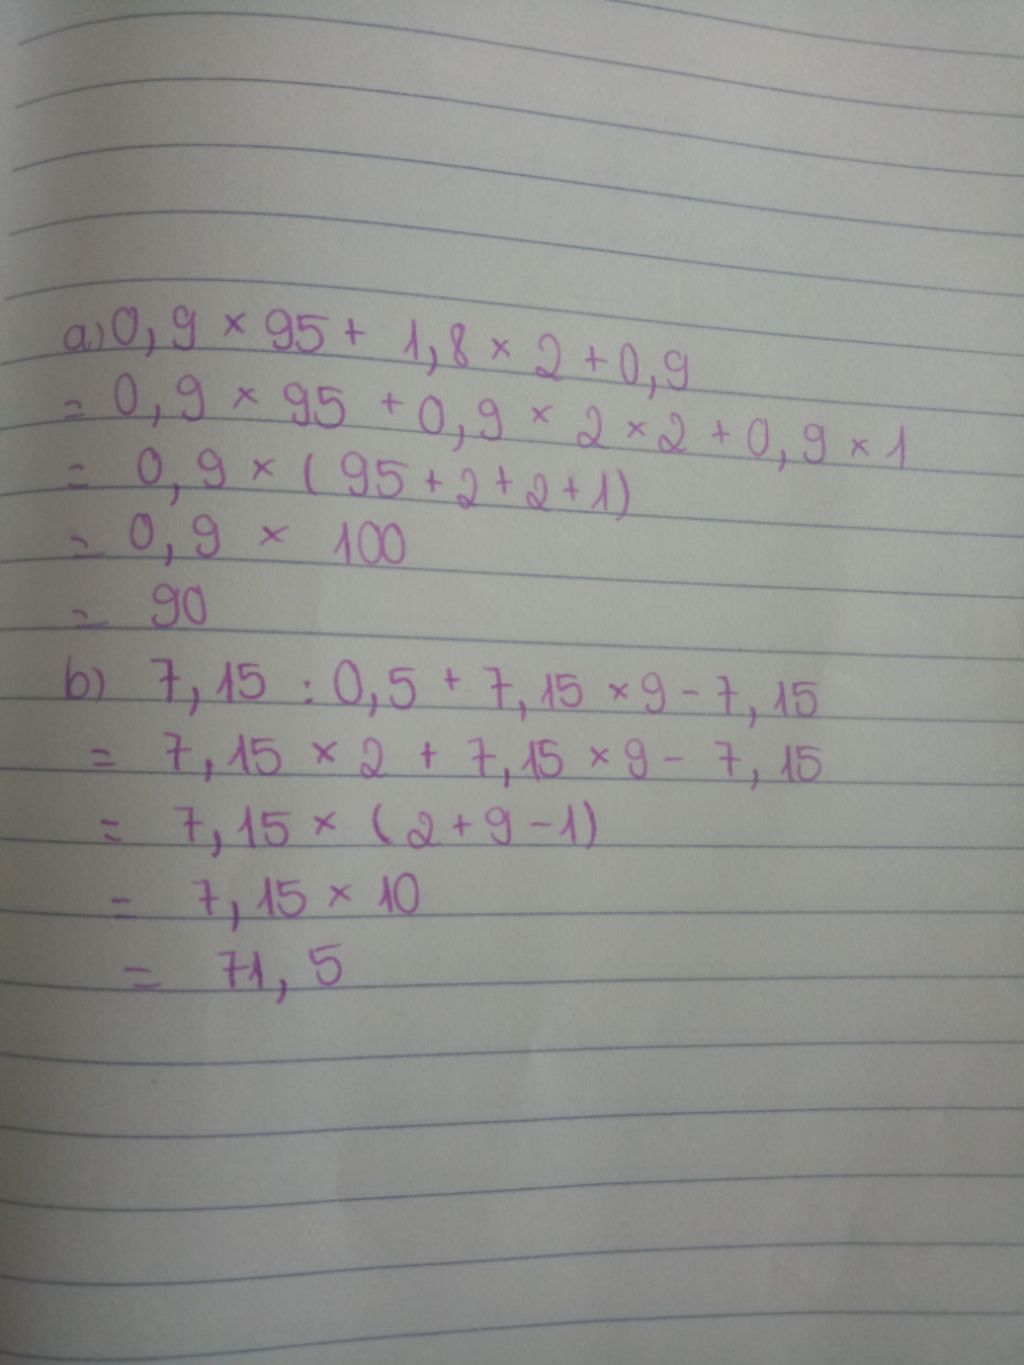 a) 0,9 × 95 + 1,8 × 2 + 0,9
= 0,9 × 95 + 0,9 × 2 × 2 + 0,9 × 1
= 0,9 × (95 + 2 + 2 + 1)
= 0,9 × 100
= 90
b) 7,15 : 0,5 + 7,15 × 9 - 7,15
= 7,15 × 2 + 7,15 × 9 - 7,15
= 7,15 × (2 + 9 - 1)
= 7,15 × 10
= 71,5